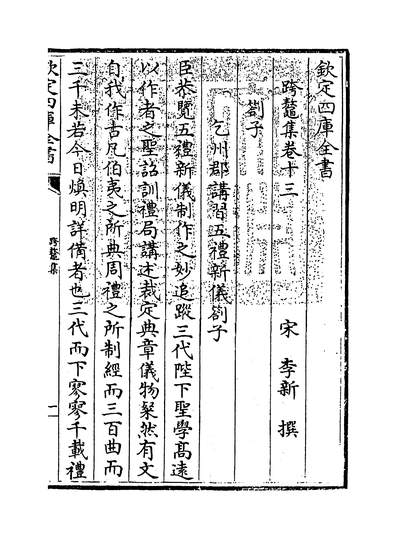 欽定四庫全書
跨鼇集卷十三
宋 李新 撰
劄子
乞州郡講習五禮新儀劄子
臣恭覽五禮新儀制作之妙追蹤三代陛下聖學髙逺
以作者之聖詔訓禮局講述裁定典章儀物粲然有文
自我作古凡伯夷之所典周禮之所制經而三百曲而
三千未若今日煥明詳備者也三代而下寥寥千載禮
欽定四庫全書
跨鼇集
一